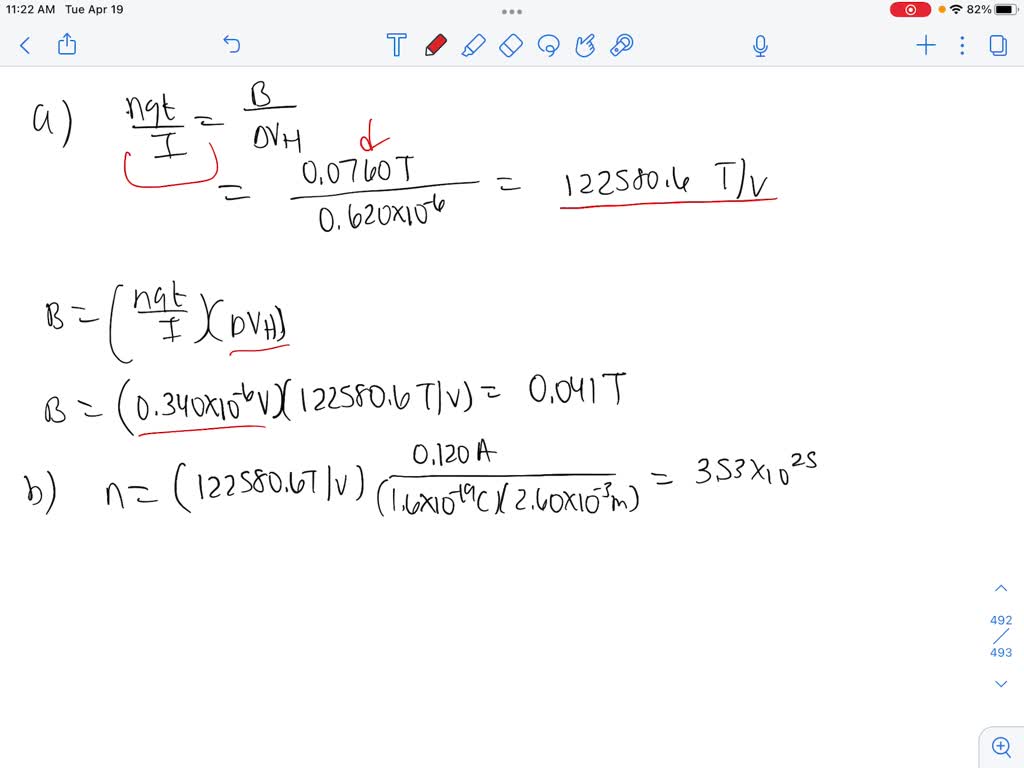 11:22 AM Tue Apr 19
82%
T
a) nqt/I = B/DVH
d
= 0.0760T/0.620×10^-6 = 122580.6 T/V
B = (nqt/I)(DVH)
B = (0.340×10^-6 V)(122580.6 T/V) = 0.041 T
b) n = (122580.6T/V) 0.120A/(1.6×10^-19 C)(2.60×10^-3 m) = 3.53×10^25
492
493